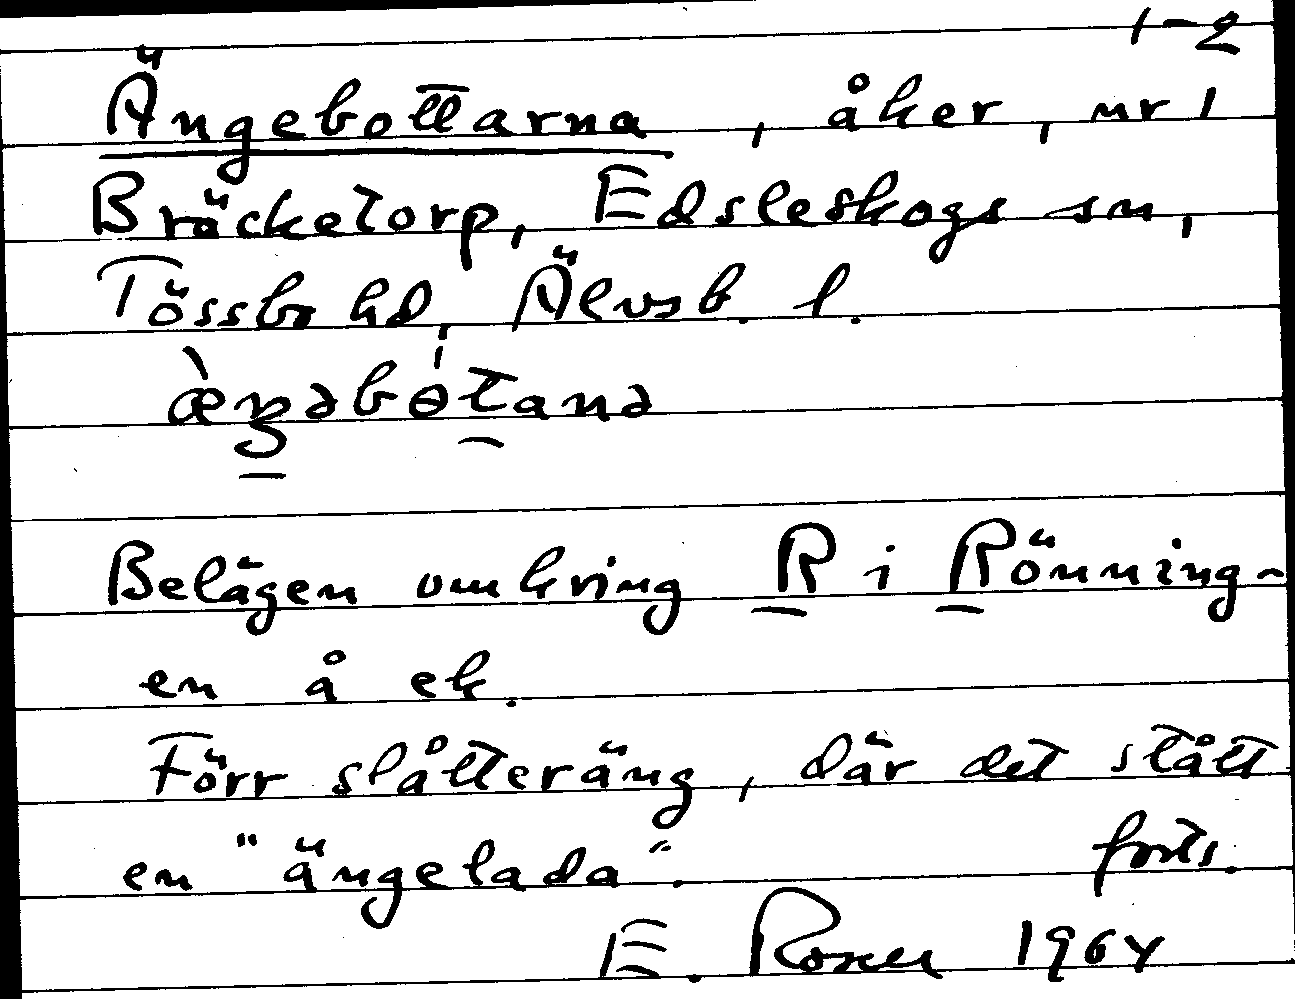 1-2
Ängebottarna, åker, nr 1
Bräcketorp, Edsleskogs sn,
Tössbo hd, Älvsb. l.
æ̀ŋəbɵ́tanə
Belägen omkring R i Rönning-
en å ek.
Förr slåtteräng, där det stått
en "ängelada". forts.
E. Rosen 1964